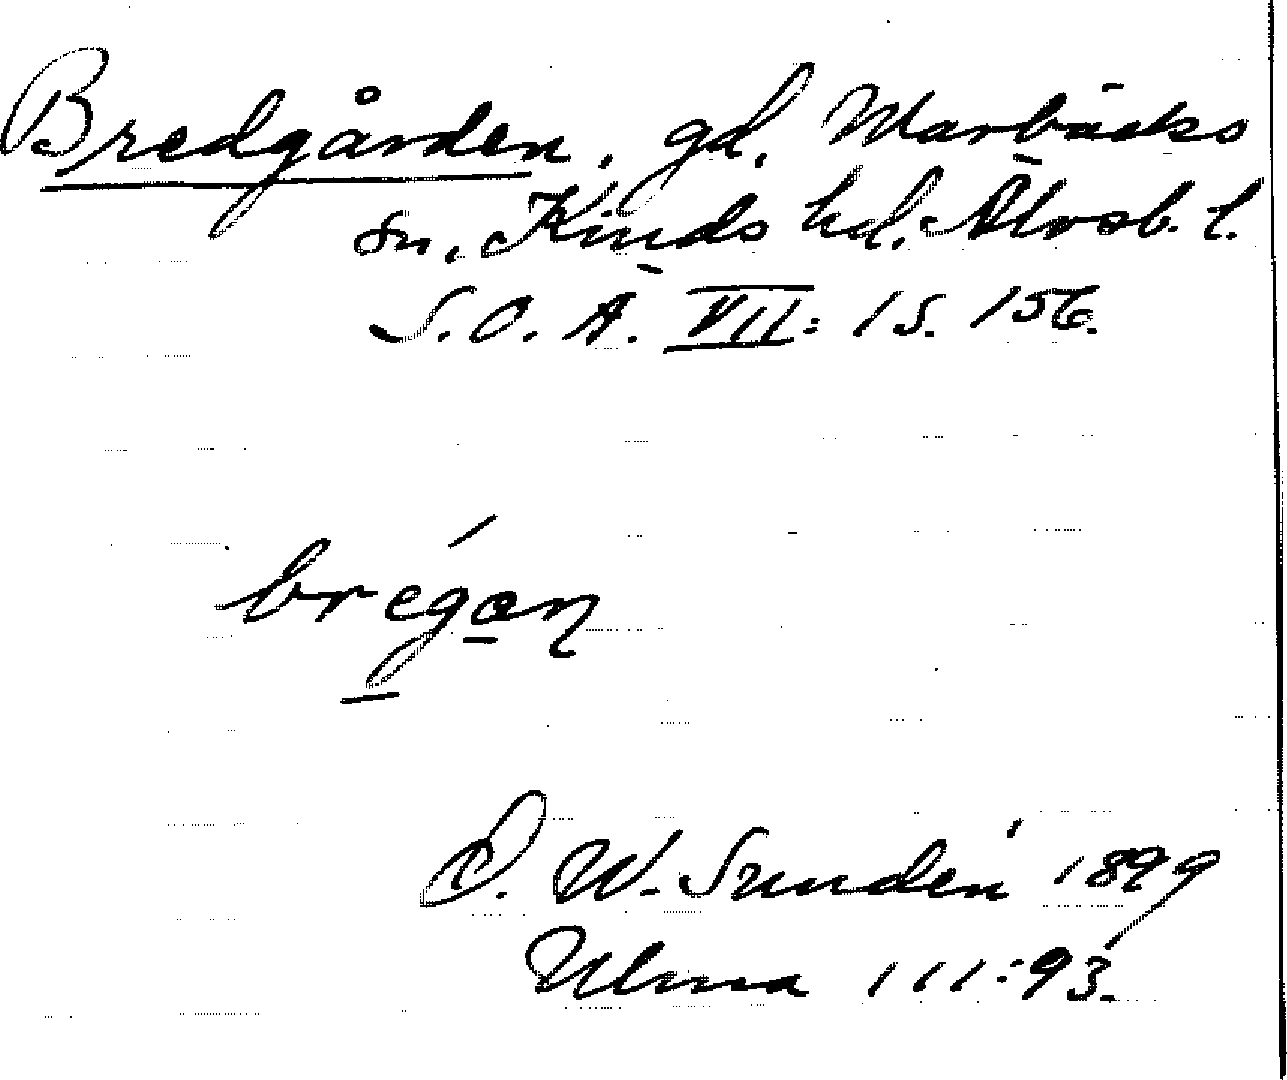 Bredgården, gd, Marbäcks
sn, Kinds hd. Älvsb. l.
S. O. Ä. VII: 1 S. 156.
brégan
D. W. Sundén 1899
Ulma 111:93.